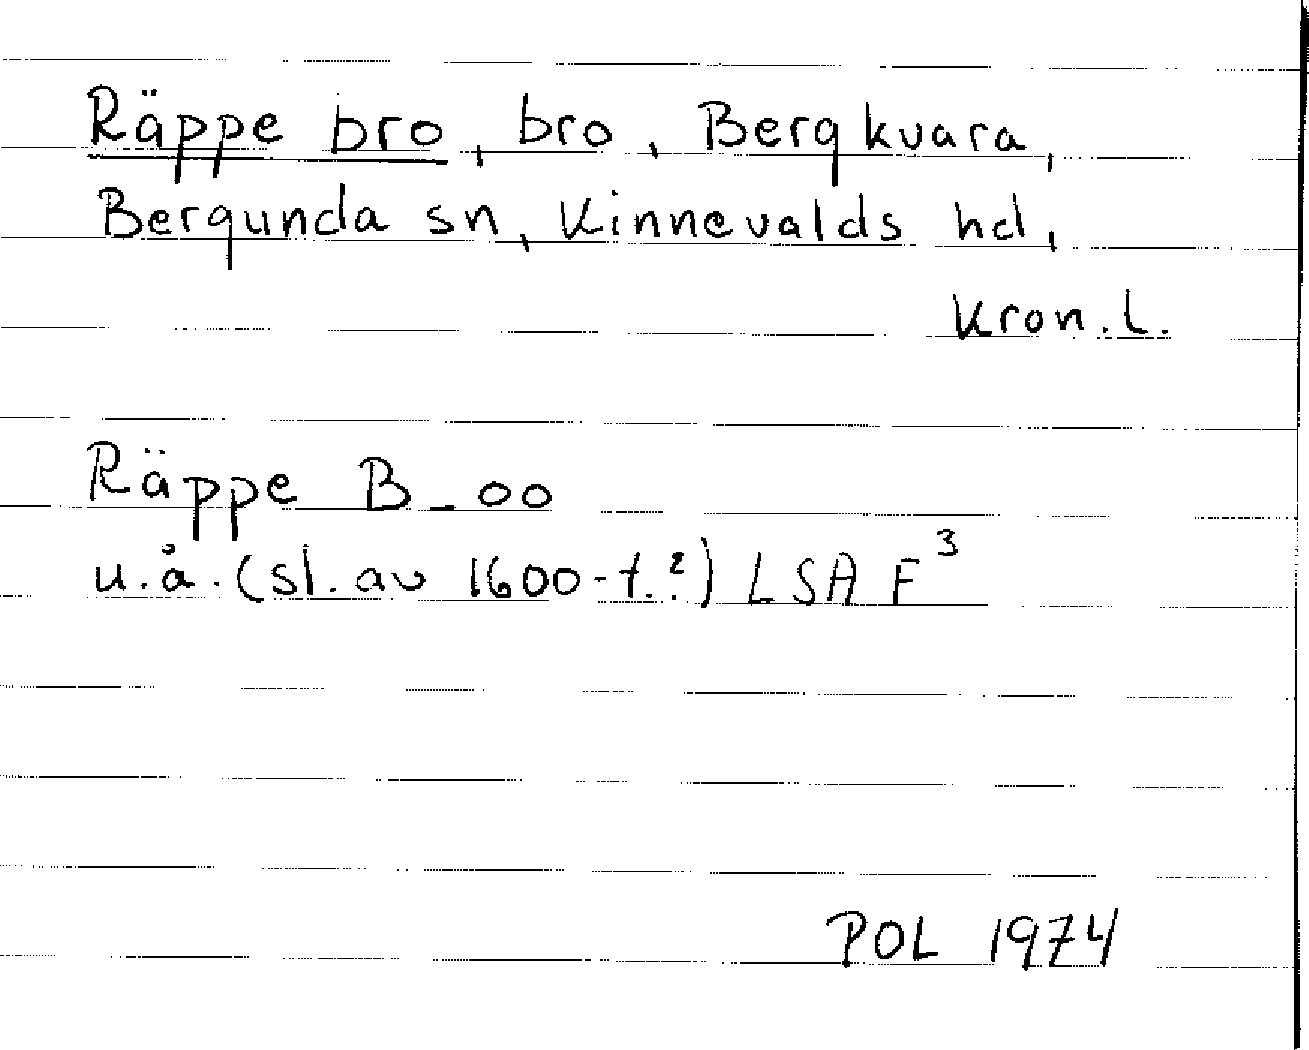 Räppe bro, bro, Bergkvara,
Bergunda sn, Kinnevalds hd,
Kron. L.
Räppe B_oo
u.å. (sl. av 1600-t.?) LSA F³
POL 1974